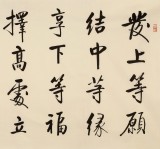 发上等願
结中等缘
享下等福
擇高處立